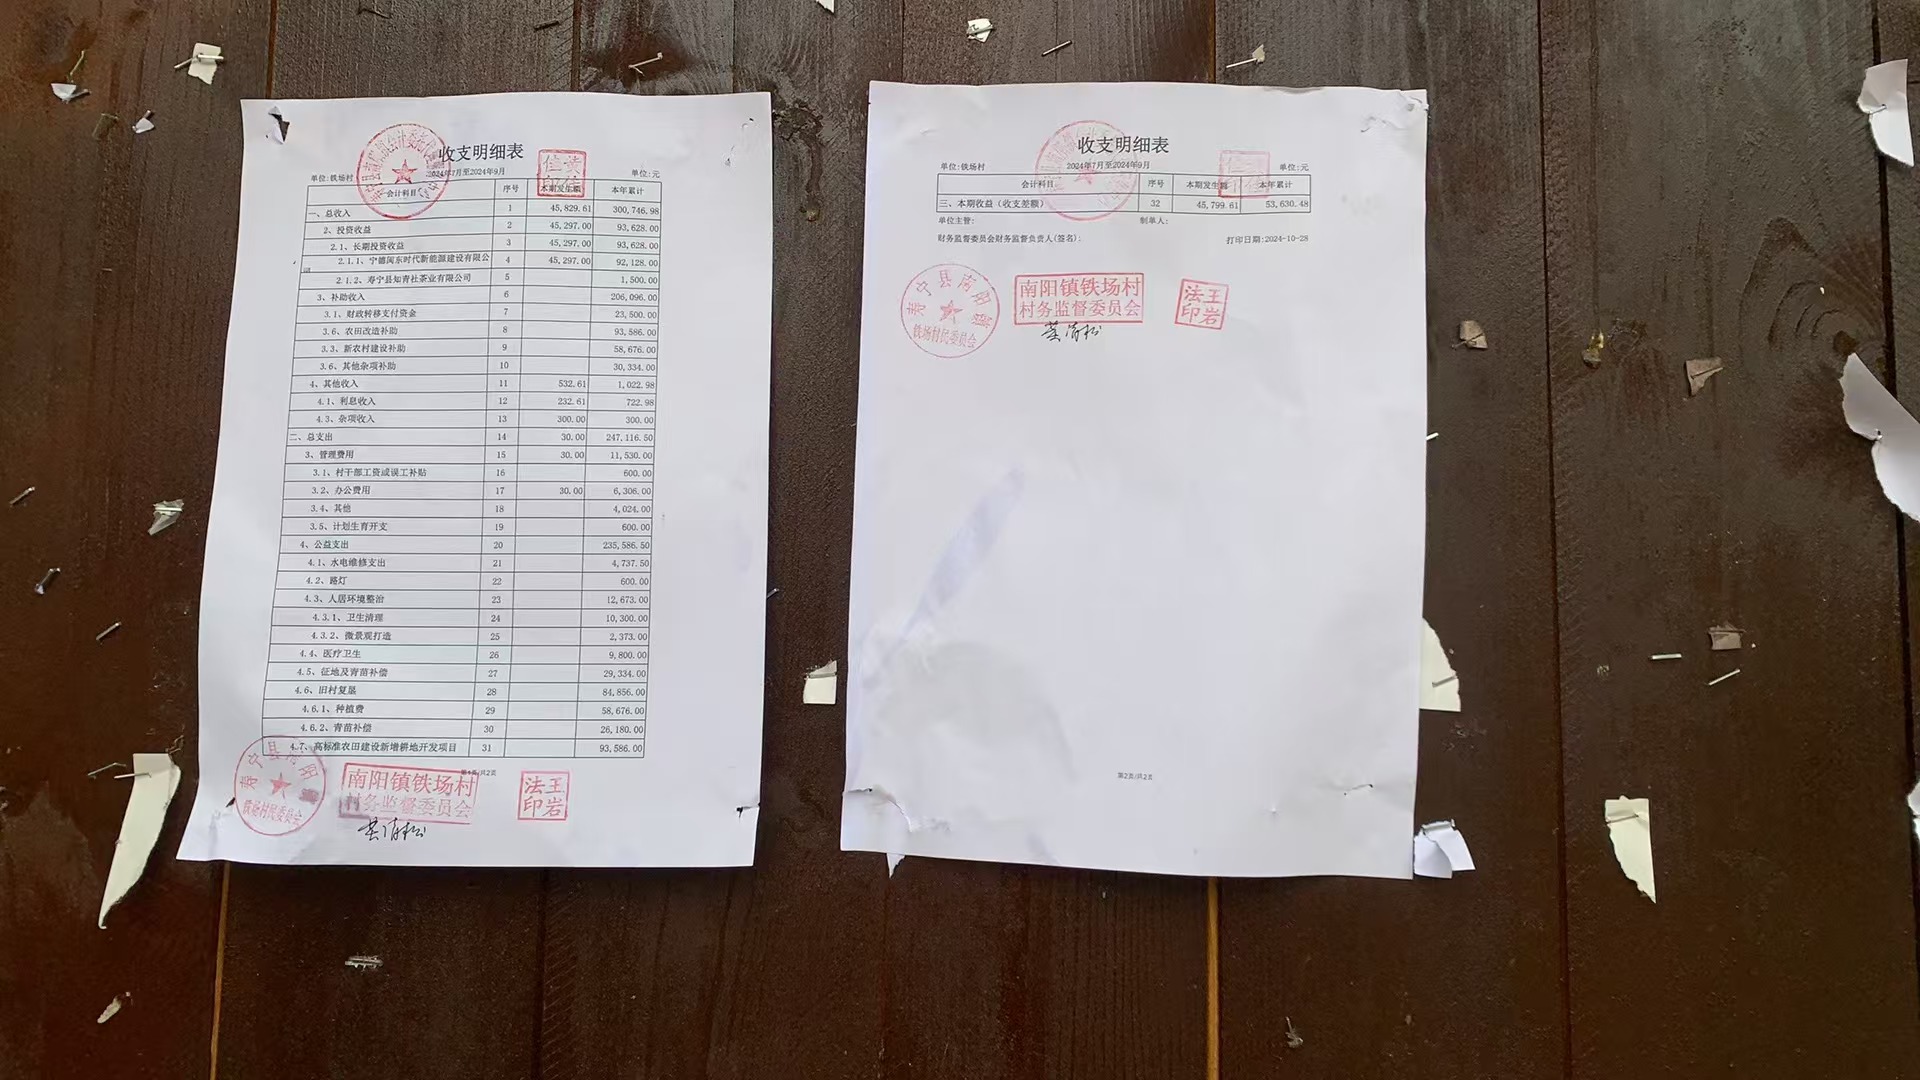 收支明细表
2024年7月至2024年9月
单位:铁场村 单位:元
会计科目 序号 本期发生额 本年累计
一、总收入 1 45,829.61 300,746.98
2、投资收益 2 45,297.00 93,628.00
2.1、长期投资收益 3 45,297.00 93,628.00
2.1.1、宁德闽东时代新能源建设有限公 4 45,297.00 92,128.00
2.1.2、寿宁县知青社茶业有限公司 5 1,500.00
3、补助收入 6 206,096.00
3.1、财政转移支付资金 7 23,500.00
3.6、农田改造补助 8 93,586.00
3.3、新农村建设补助 9 58,676.00
3.6、其他杂项补助 10 30,334.00
4、其他收入 11 532.61 1,022.98
4.1、利息收入 12 232.61 722.98
4.3、杂项收入 13 300.00 300.00
二、总支出 14 30.00 247,116.50
3、管理费用 15 30.00 11,530.00
3.1、村干部工资或误工补贴 16 600.00
3.2、办公费用 17 30.00 6,306.00
3.4、其他 18 4,024.00
3.5、计划生育开支 19 600.00
4、公益支出 20 235,586.50
4.1、水电维修支出 21 4,737.50
4.2、路灯 22 600.00
4.3、人居环境整治 23 12,673.00
4.3.1、卫生清理 24 10,300.00
4.3.2、微景观打造 25 2,373.00
4.4、医疗卫生 26 9,800.00
4.5、征地及青苗补偿 27 29,334.00
4.6、旧村复垦 28 84,856.00
4.6.1、种植费 29 58,676.00
4.6.2、青苗补偿 30 26,180.00
4.7、高标准农田建设新增耕地开发项目 31 93,586.00
第1页/共2页
寿宁县南阳
铁场村民委员会
南阳镇铁场村
村务监督委员会
王岩
法印
收支明细表
2024年7月至2024年9月
单位:铁场村 单位:元
会计科目 序号 本期发生额 本年累计
三、本期收益(收支差额) 32 45,799.61 53,630.48
单位主管: 制单人:
财务监督委员会财务监督负责人(签名): 打印日期:2024-10-28
寿宁县南阳镇
铁场村民委员会
南阳镇铁场村
村务监督委员会
王岩
法印
第2页/共2页